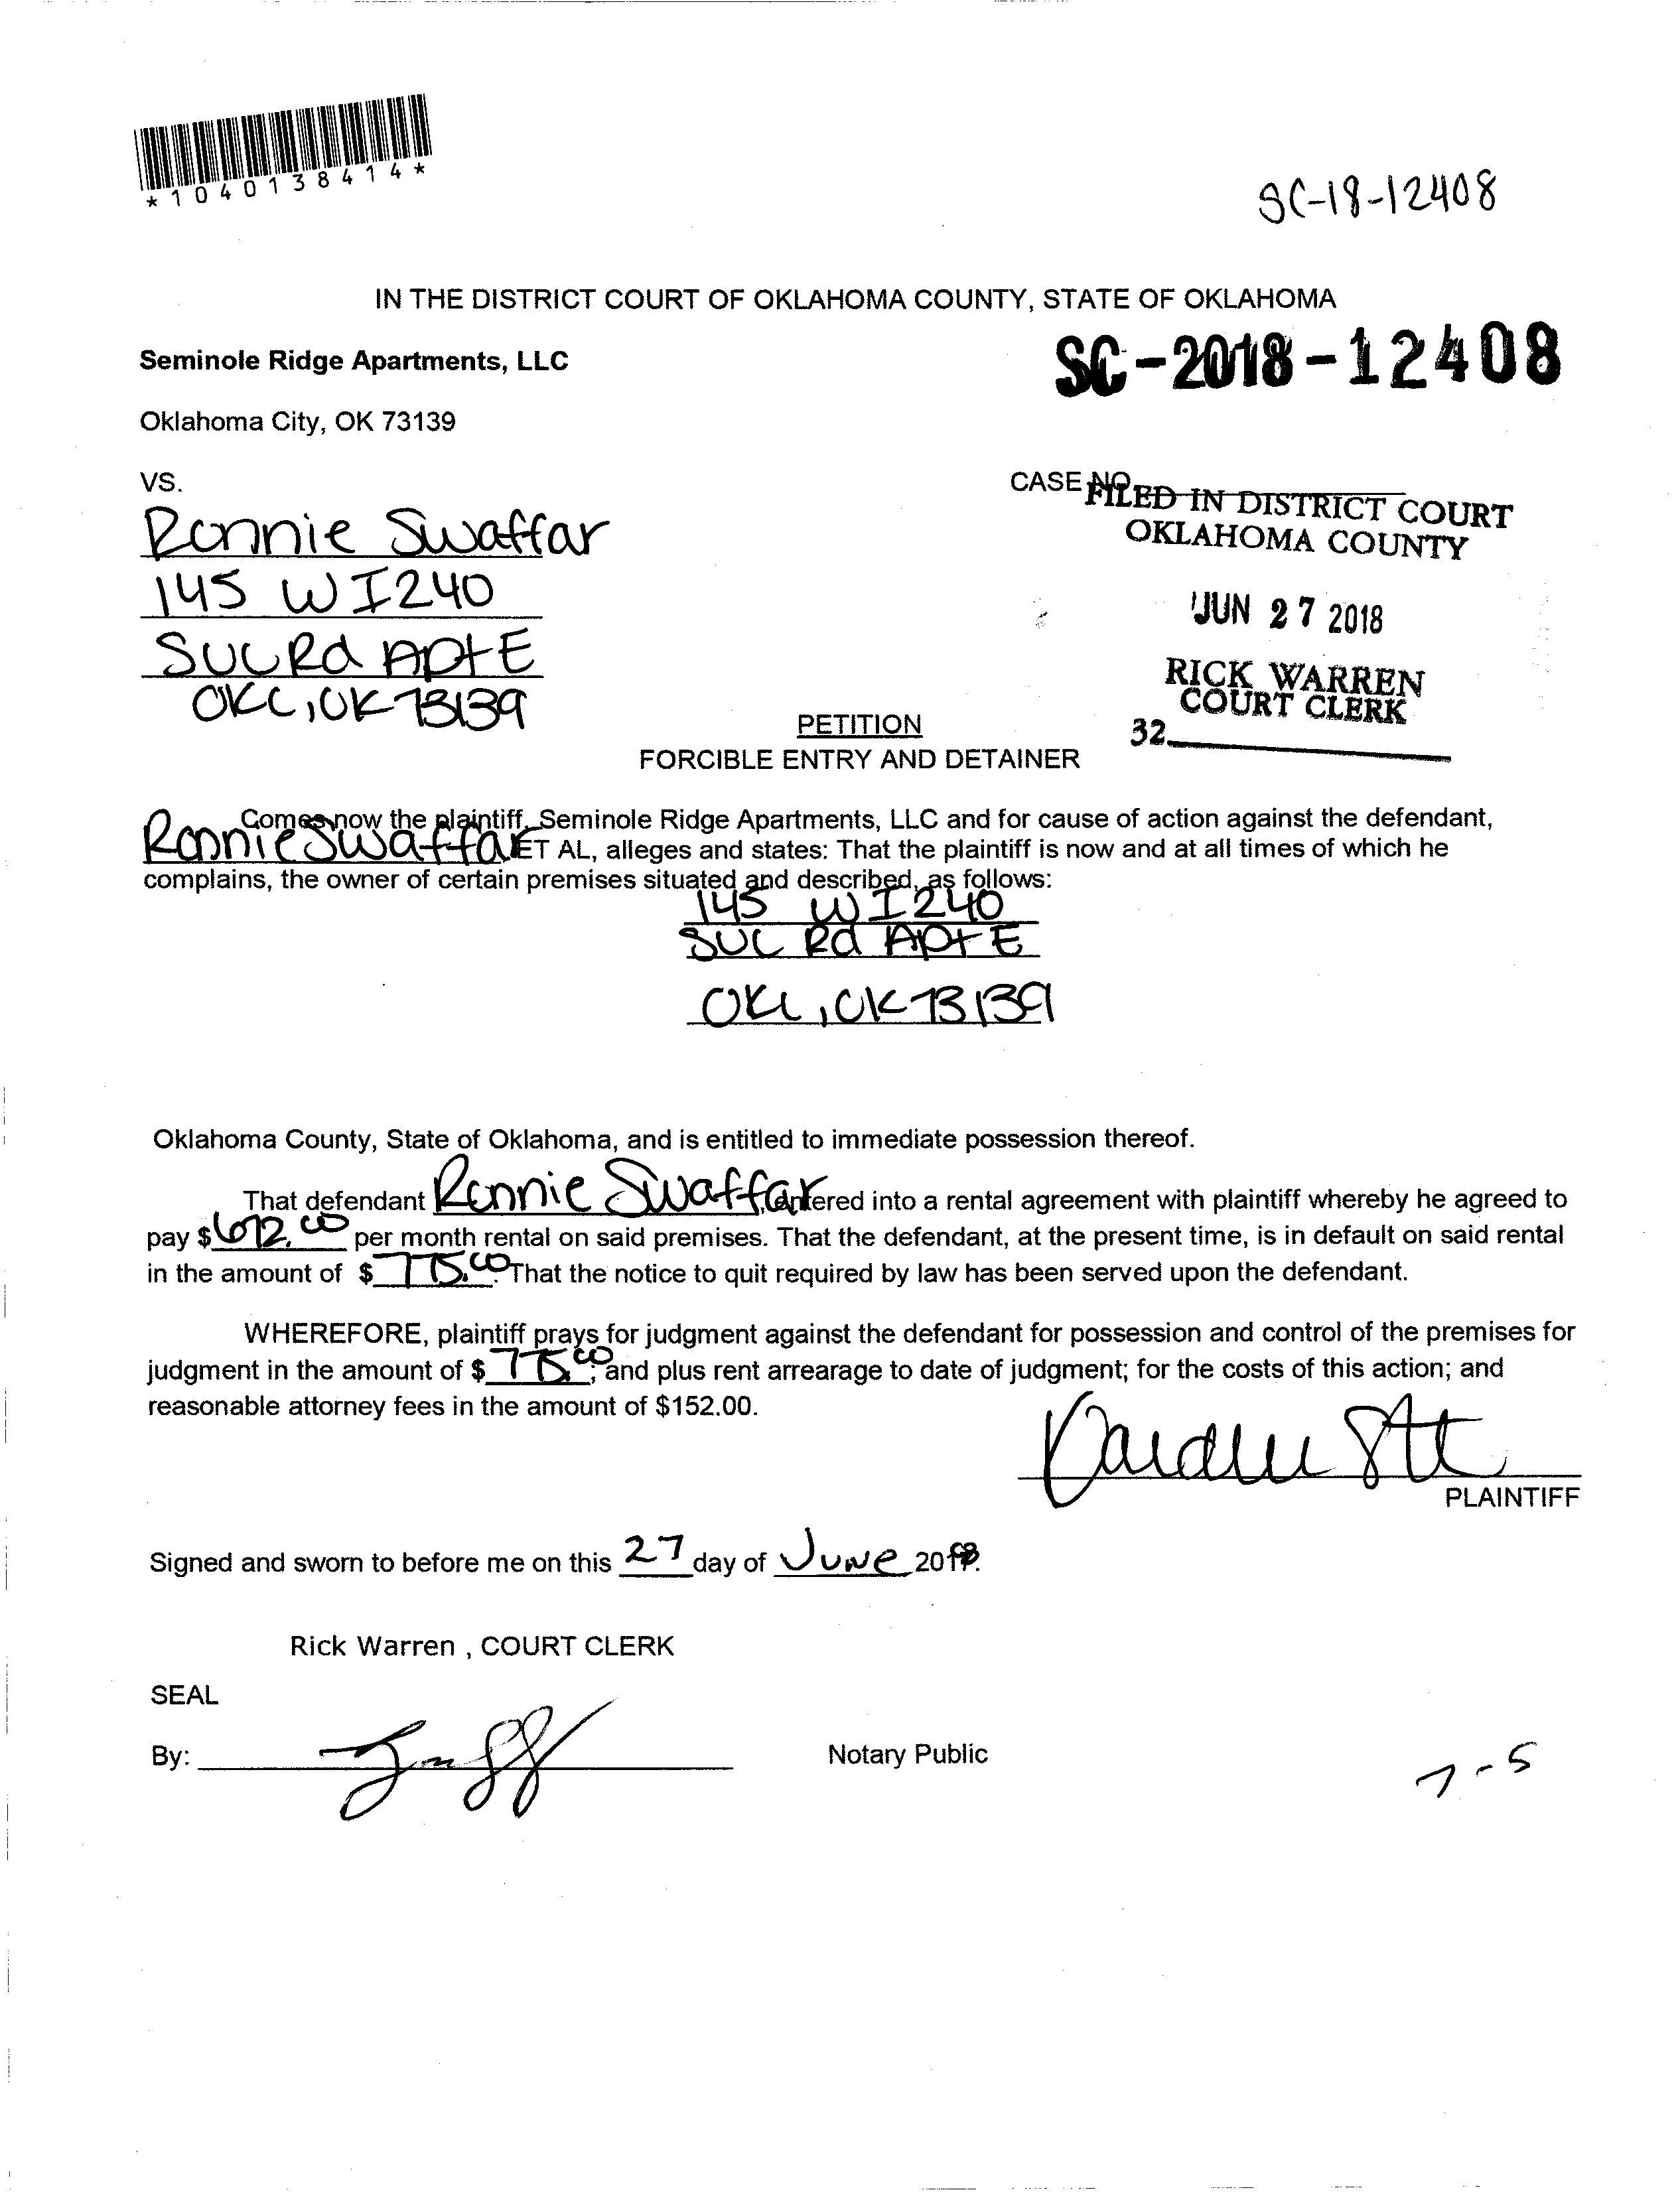 *1040138414*
SC-18-12408
IN THE DISTRICT COURT OF OKLAHOMA COUNTY, STATE OF OKLAHOMA
Seminole Ridge Apartments, LLC
SC-2018-12408
Oklahoma City, OK 73139
VS.
CASE NO.
FILED IN DISTRICT COURT
OKLAHOMA COUNTY
JUN 27 2018
RICK WARREN
COURT CLERK
32
Ronnie Swaffar
145 W I240
SVC Rd Apt E
OKC, OK 73139
PETITION
FORCIBLE ENTRY AND DETAINER
Comes now the plaintiff, Seminole Ridge Apartments, LLC and for cause of action against the defendant,
Ronnie Swaffar ET AL, alleges and states: That the plaintiff is now and at all times of which he
complains, the owner of certain premises situated and described, as follows:
145 W I240
SVC Rd Apt E
OKC, OK 73139
Oklahoma County, State of Oklahoma, and is entitled to immediate possession thereof.
That defendant Ronnie Swaffar, entered into a rental agreement with plaintiff whereby he agreed to
pay $672.00 per month rental on said premises. That the defendant, at the present time, is in default on said rental
in the amount of $ 775.00. That the notice to quit required by law has been served upon the defendant.
WHEREFORE, plaintiff prays for judgment against the defendant for possession and control of the premises for
judgment in the amount of $ 775.00; and plus rent arrearage to date of judgment; for the costs of this action; and
reasonable attorney fees in the amount of $152.00.
PLAINTIFF
Signed and sworn to before me on this 27 day of June 2018.
Rick Warren , COURT CLERK
SEAL
By:
Notary Public
7-5